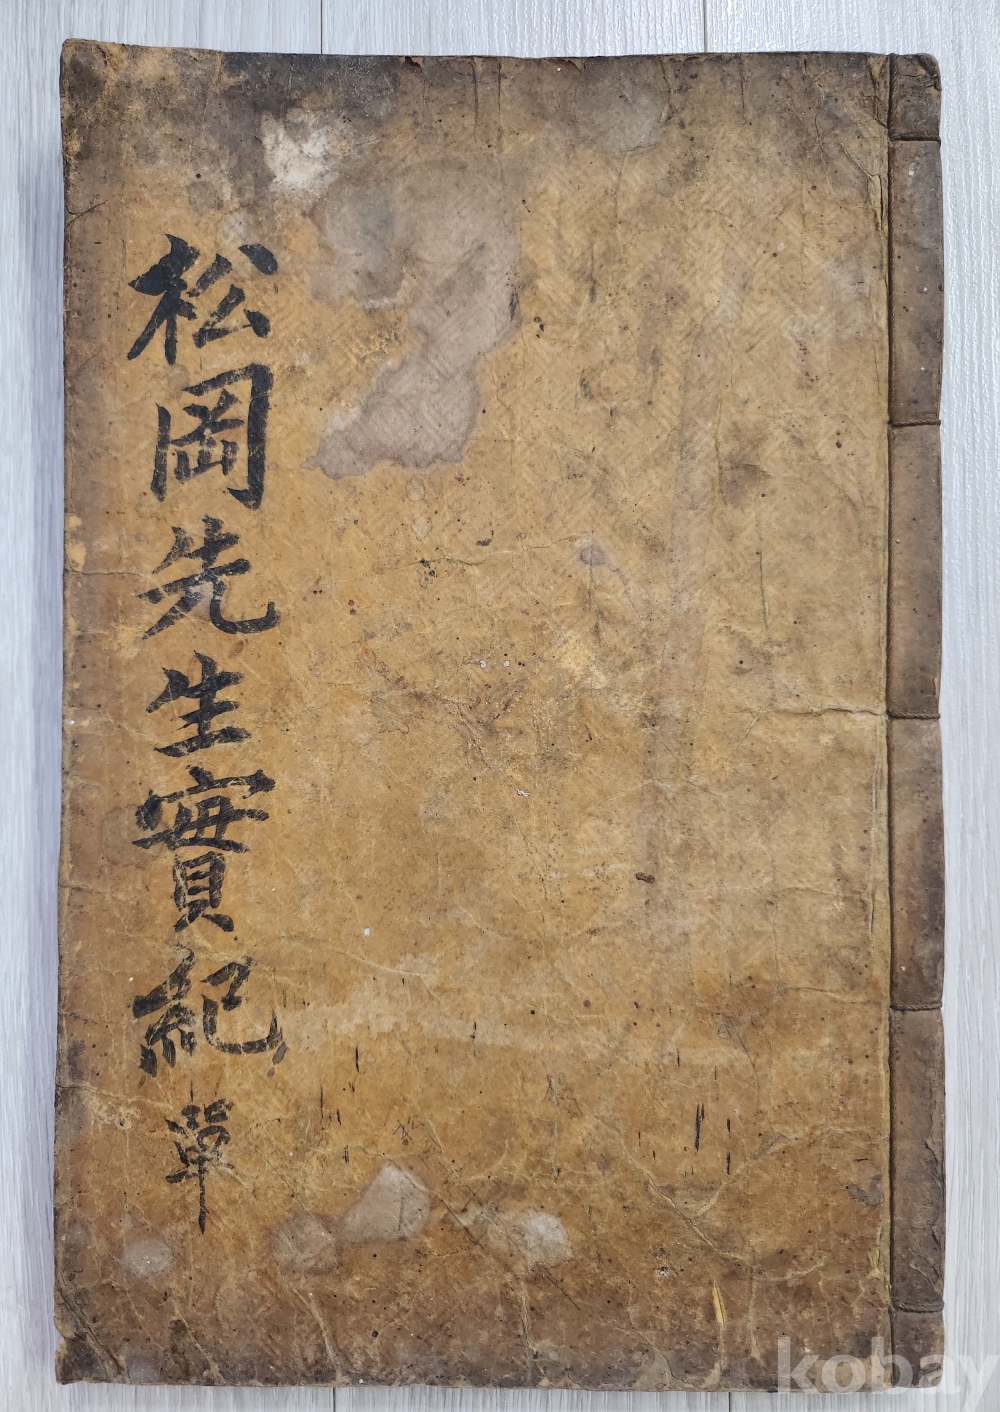 松岡先生實紀 單
kobay